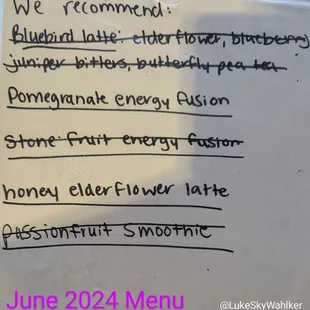 We recommend:
Bluebird latte: elderflower, blueberry
juniper bitters, butterfly pea tea
Pomegranate energy fusion
Stone fruit energy fusion
honey elderflower latte
passionfruit Smoothie
June 2024 Menu
@LukeSkyWahlker